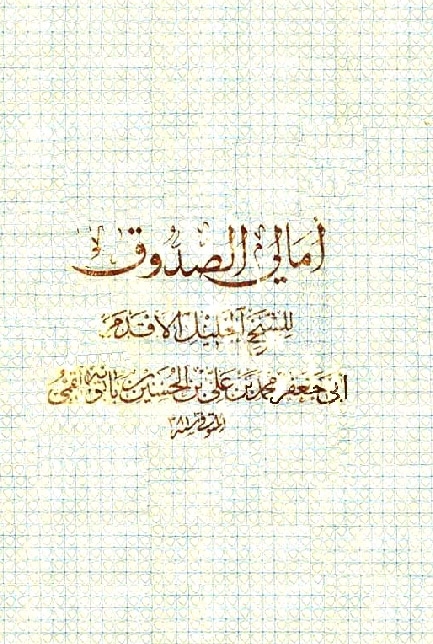 أمالي الصدوق
للشيخ الجليل الأقدم
أبي جعفر محمد بن علي بن الحسين بن بابويه القمي
المتوفى سنة ٣٨١